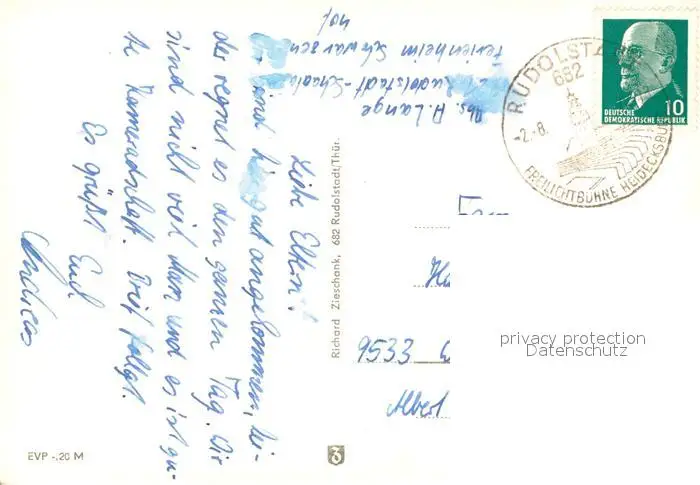 Liebe Eltern!
sind hier gut angekommen, lei-
der regnet es den ganzen Tag. Wir
sind nicht viel Mann und es ist gu-
te Kameradschaft. Brief folgt.
Es grüßt Euch
Andreas
Abs. A. Lange
Rudolstadt-Schaala
Ferienheim Schwarzen
hof
Richard Zieschank, 682 Rudolstadt/Thür.
EVP -,20 M
RUDOLSTA
682
-2.-8.
FREILICHTBÜHNE HEIDECKSBU
10
DEUTSCHE
DEMOKRATISCHE REPUBLIK
Fam
Ha
9533 W
Albert
privacy protection
Datenschutz